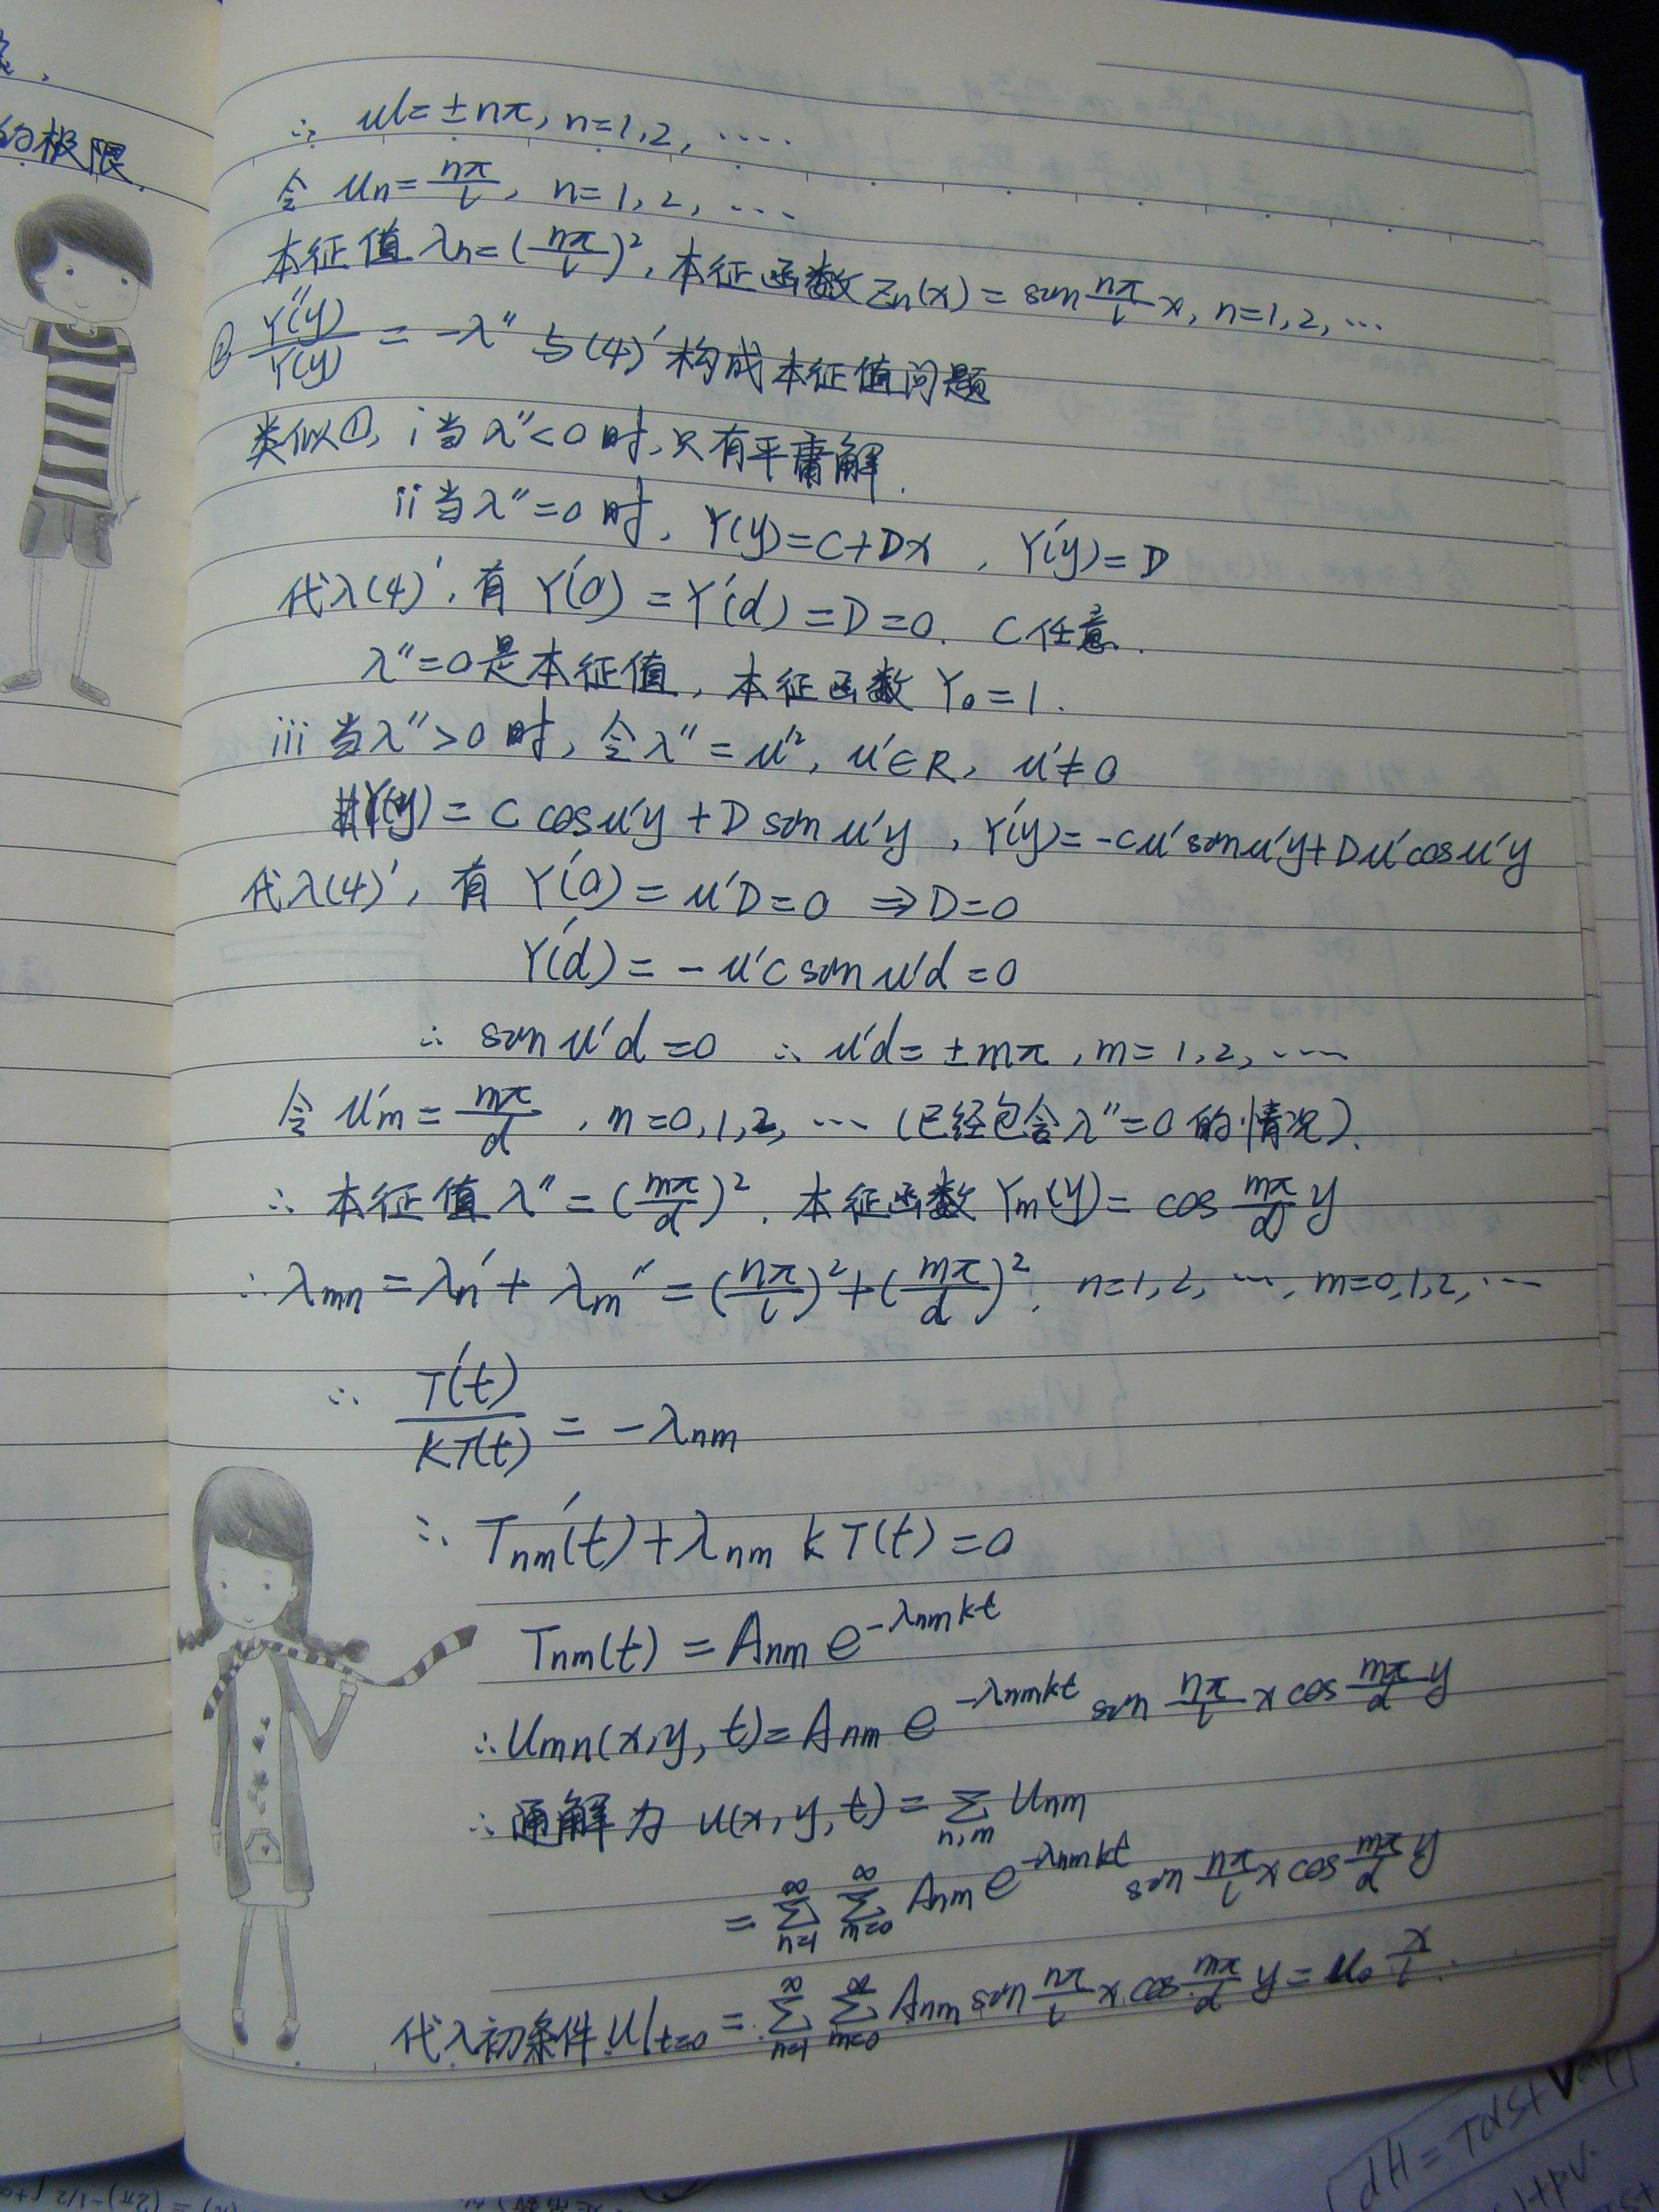 的极限.
∴ μl=±nπ, n=1,2, ....
令 μn=nπ/l, n=1,2, ...
本征值 λn=(nπ/l)², 本征函数 Zn(x)=sin nπ/l x, n=1,2, ...
② Y''(y)/Y(y) = -λ'' 与(4)'构成本征值问题
类似①, i 当λ''<0时,只有平庸解.
ii 当λ''=0时, Y(y)=C+Dx , Y'(y)=D
代入(4)', 有 Y'(0)=Y'(d)=D=0. C任意.
λ''=0是本征值, 本征函数 Y₀=1.
iii 当λ''>0时, 令λ''=μ'², μ'∈R, μ'≠0
Y(y)=C cosμ'y+D sinμ'y , Y'(y)=-Cμ'sinμ'y+Dμ'cosμ'y
代入(4)', 有 Y'(0)=μ'D=0 ⇒D=0
Y'(d)=-μ'C sinμ'd=0
∴ sinμ'd=0 ∴ μ'd=±mπ, m=1,2, ....
令 μ'm=mπ/d , m=0,1,2, ... (已经包含λ''=0的情况).
∴ 本征值λ''=(mπ/d)², 本征函数 Ym(y)=cos mπ/d y
∴ λmn=λn'+λm''=(nπ/l)²+(mπ/d)², n=1,2, ..., m=0,1,2, ...
∴ T'(t)/kT(t) = -λnm
∴ Tnm'(t)+λnm kT(t)=0
Tnm(t)=Anm e^{-λnmkt}
∴ Umn(x,y,t)=Anm e^{-λnmkt} sin nπ/l x cos mπ/d y
∴ 通解为 u(x,y,t)=∑_{n,m} Unm
=∑_{n=1}^∞ ∑_{m=0}^∞ Anm e^{-λnmkt} sin nπ/l x cos mπ/d y
代入初条件 u|t=0 = ∑_{n=1}^∞ ∑_{m=0}^∞ Anm sin nπ/l x cos mπ/d y=u₀ x/l.
dH=TdS+Vdp